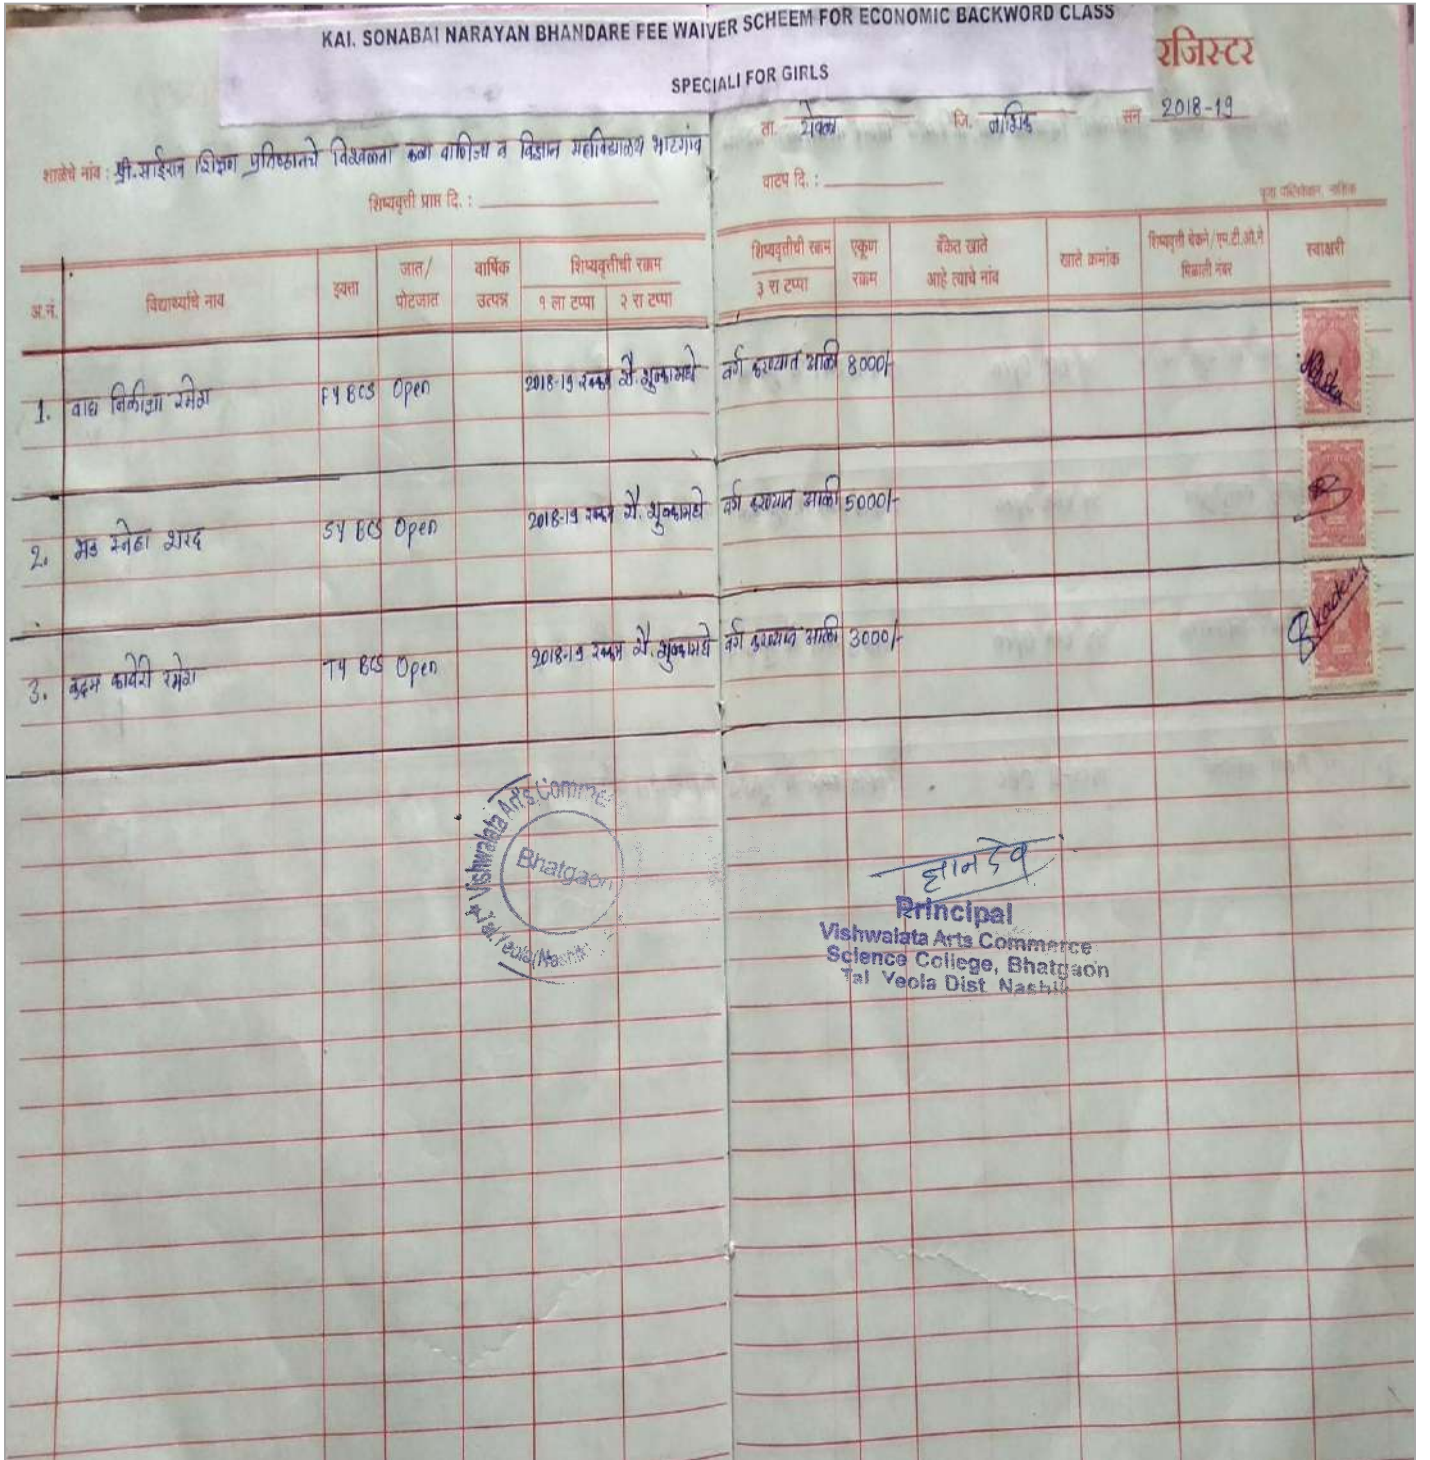 KAI. SONABAI NARAYAN BHANDARE FEE WAIVER SCHEEM FOR ECONOMIC BACKWORD CLASS
SPECIALI FOR GIRLS
रजिस्टर
ता. येवला जि. नाशिक सन 2018-19
शाळेचे नांव : श्री. साईराज शिक्षण प्रतिष्ठानचे विश्वलता कला वाणिज्य व विज्ञान महाविद्यालय भाटगांव
शिष्यवृत्ती प्राप्त दि. : वाटप दि. :
अ.नं. विद्यार्थ्याचे नाव इयत्ता जात/ पोटजात वार्षिक उत्पन्न शिष्यवृत्तीची रक्कम १ ला टप्पा २ रा टप्पा शिष्यवृत्तीची रक्कम ३ रा टप्पा एकूण रक्कम बँकेत खाते आहे त्याचे नांव खाते क्रमांक शिष्यवृत्ती चेकने/एम.टी.ओ.ने मिळाली नंबर स्वाक्षरी
1. वाघ निकीशा रमेश FY BCS Open 2018-19 रक्कम शै. शुल्कामधे वर्ग करण्यात आली 8000/-
2. भड स्नेहा शरद SY BCS Open 2018-19 रक्कम शै. शुल्कामधे वर्ग करण्यात आली 5000/-
3. कदम कावेरी रमेश TY BCS Open 2018-19 रक्कम शै. शुल्कामधे वर्ग करण्यात आली 3000/-
Bkadam
★ Vishwalata Arts Commerce
Bhatgaon
Tal. Yeola (Nashik
ज्ञानदेव
Principal
Vishwalata Arts Commerce
Science College, Bhatgaon
Tal Yeola Dist Nashik